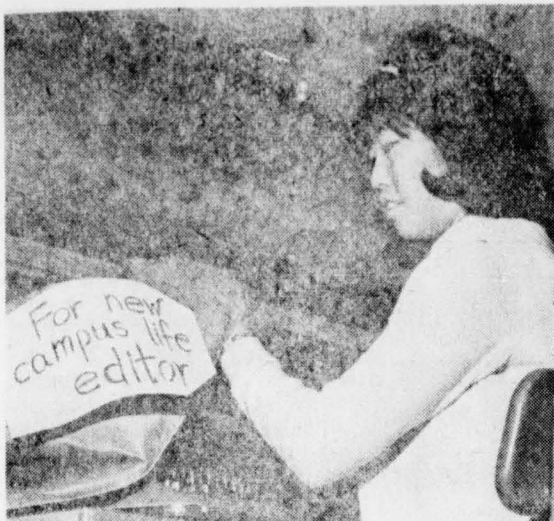 For new
campus life
editor